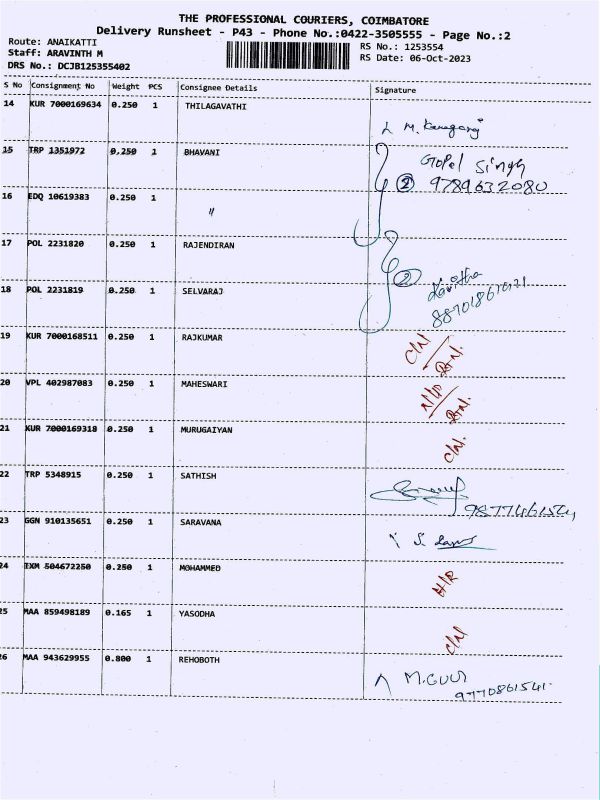 THE PROFESSIONAL COURIERS, COIMBATORE
Delivery Runsheet - P43 - Phone No.:0422-3505555 - Page No.:2
Route: ANAIKATTI
Staff: ARAVINTH M
DRS No.: DCJB125355402
RS No.: 1253554
RS Date: 06-Oct-2023
S No Consignment No Weight PCS Consignee Details Signature
14 KUR 7000169634 0.250 1 THILAGAVATHI
15 TRP 1351972 0.250 1 BHAVANI Gopel Singh
② 9789632080
16 EDQ 10619383 0.250 1 "
17 POL 2231820 0.250 1 RAJENDIRAN
②
18 POL 2231819 0.250 1 SELVARAJ
19 KUR 7000168511 0.250 1 RAJKUMAR C/N/
20 VPL 402987083 0.250 1 MAHESWARI
21 KUR 7000169318 0.250 1 MURUGAIYAN C/N.
22 TRP 5348915 0.250 1 SATHISH
23 GGN 910135651 0.250 1 SARAVANA
24 IXM 504672250 0.250 1 MOHAMMED
25 MAA 859498189 0.165 1 YASODHA C/N
26 MAA 943629955 0.800 1 REHOBOTH
9770861541